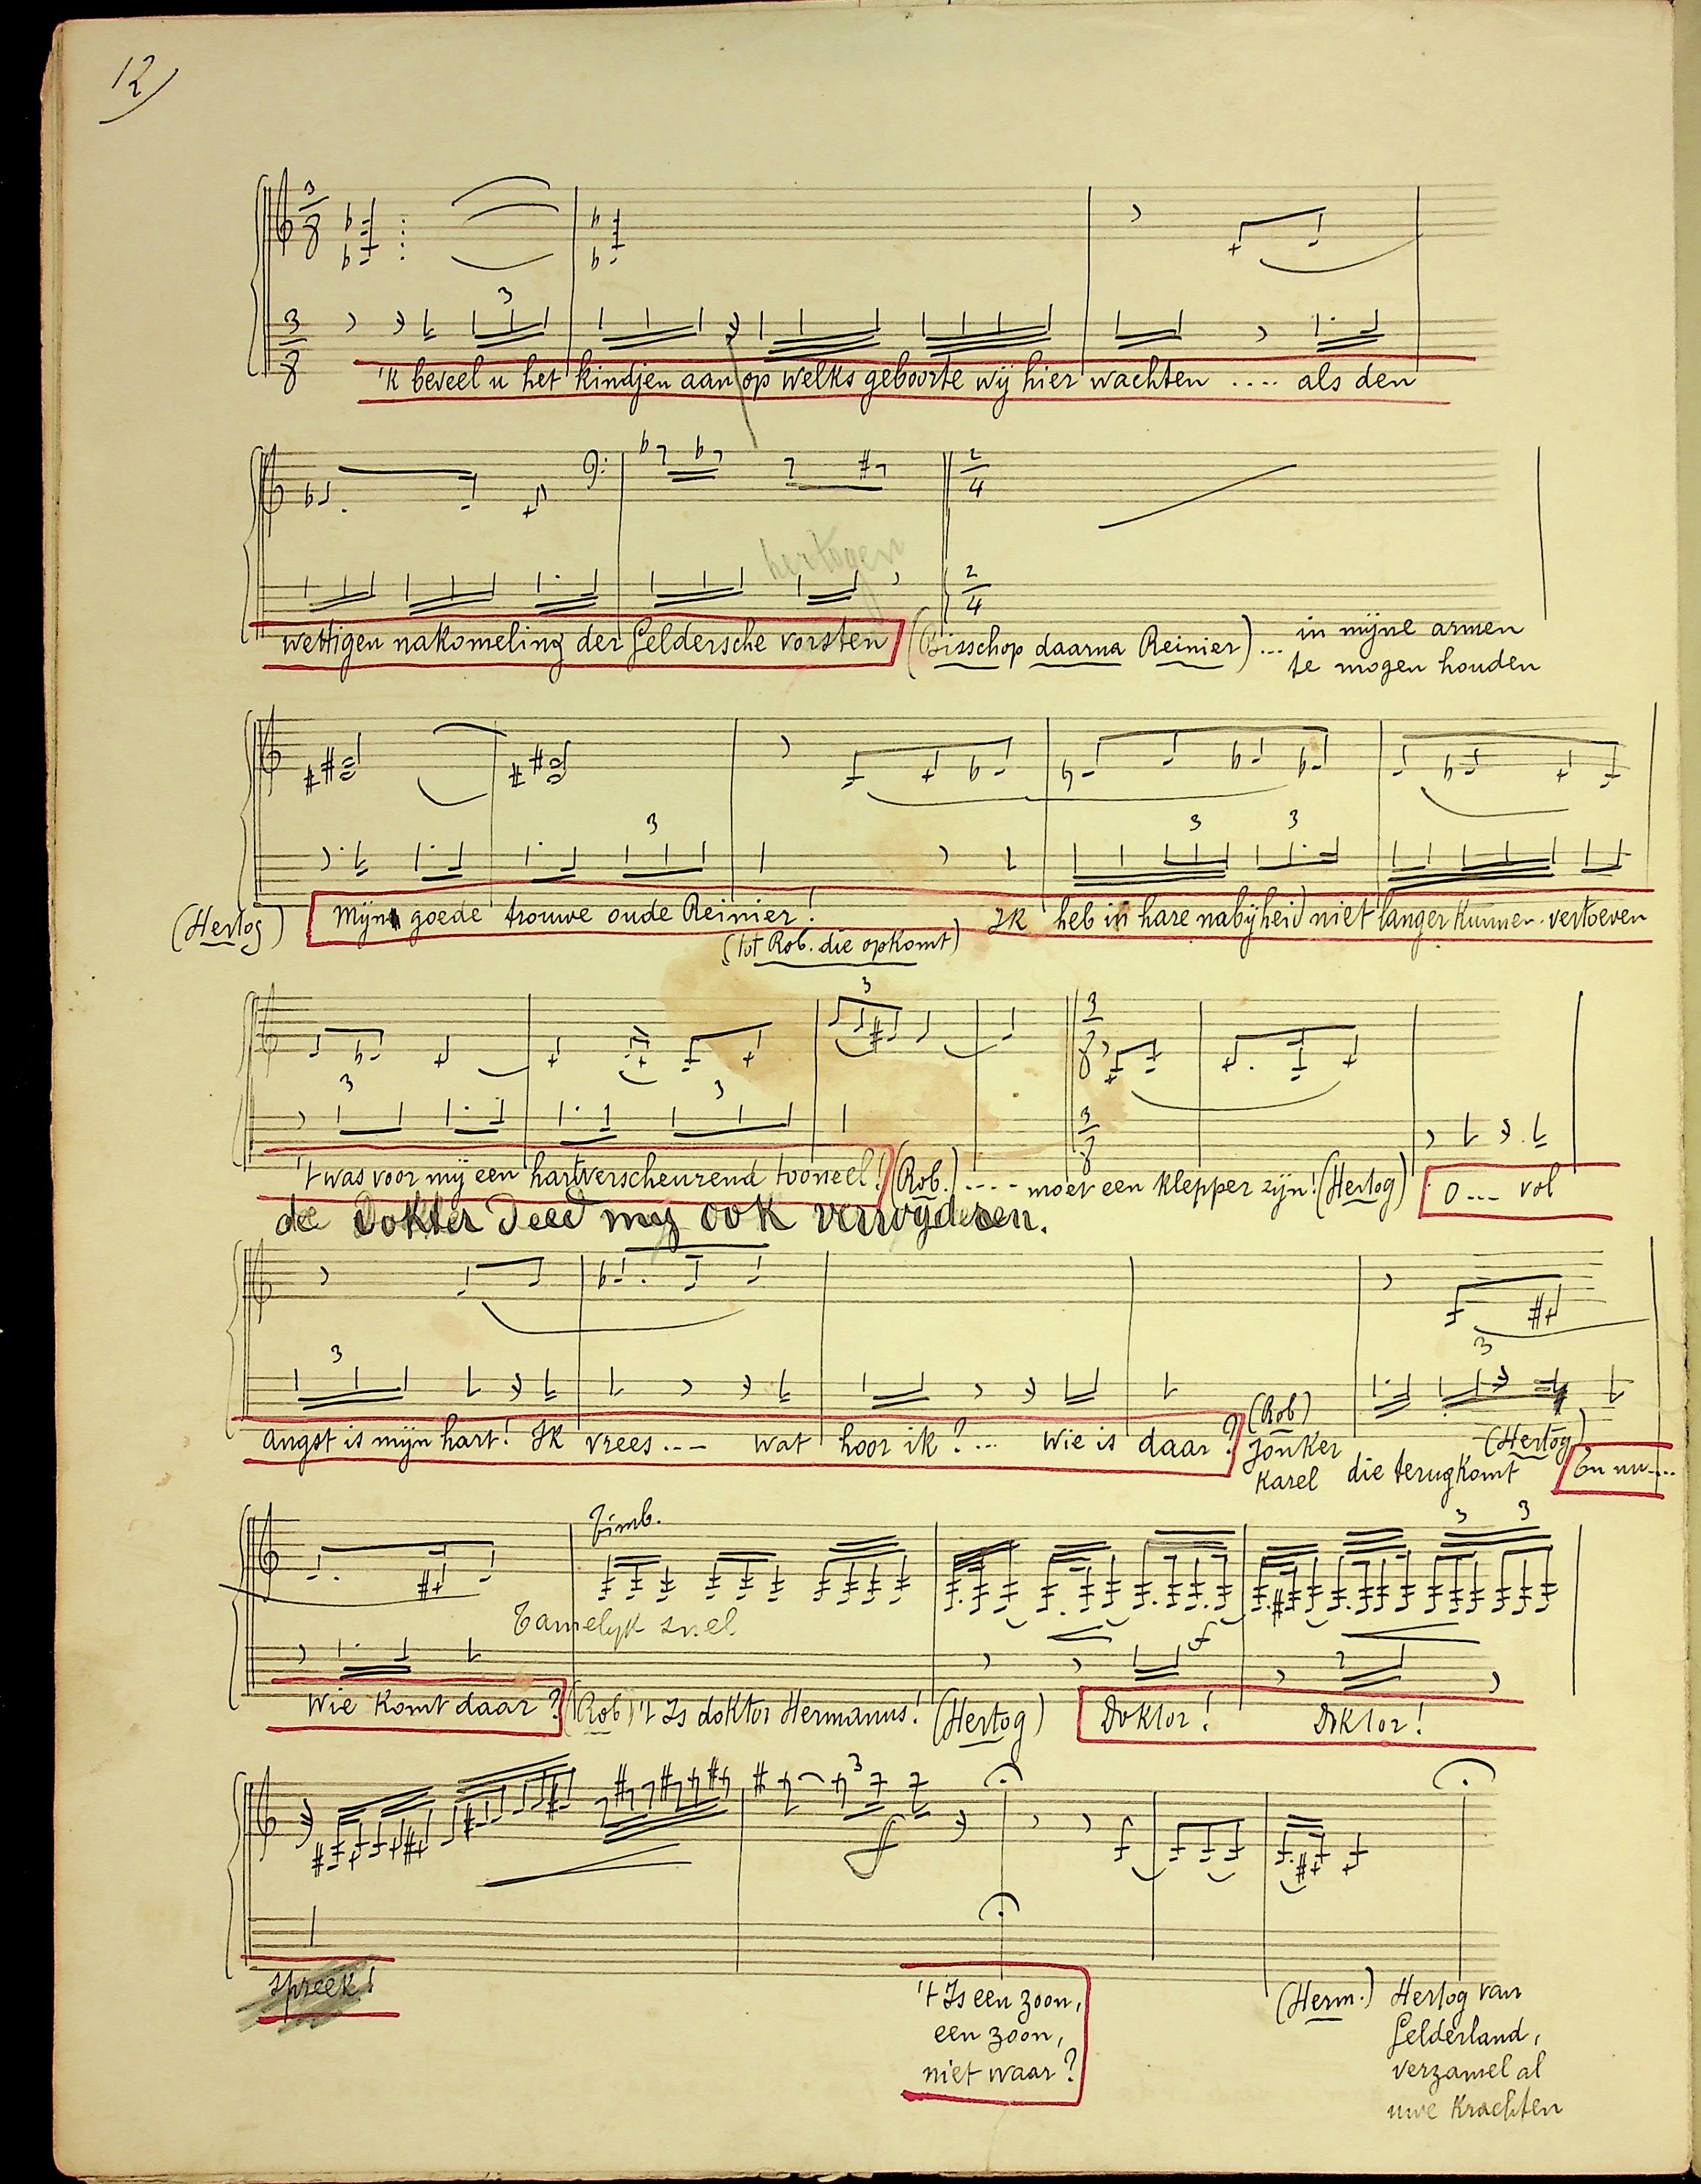 12
'k beveel u het kindjen aan op welks geboorte wij hier wachten .... als den
hertogen
wettigen nakomeling der Geldersche vorsten (Bisschop daarna Reinier) ... in mijne armen
te mogen houden
(Hertog) Mijn goede trouwe oude Reinier! (tot Rob. die opkomt) Ik heb in hare nabijheid niet langer kunnen vertoeven
't was voor mij een hartverscheurend tooneel! (Rob.) .... moet een klepper zijn! (Hertog) O... vol
de Dokter deed mij ook verwijderen.
angst is mijn hart! Ik vrees... wat hoor ik?... Wie is daar? (Rob) Jonker Karel die terugkomt (Hertog) En nu....
Timb.
Tamelyk snel
f
Wie komt daar? (Rob) 't Is doktor Hermanus! (Hertog) Doktor! Doktor!
f
spreek!
't Is een zoon,
een zoon,
niet waar?
(Herm.) Hertog van
Gelderland,
verzamel al
uwe krachten